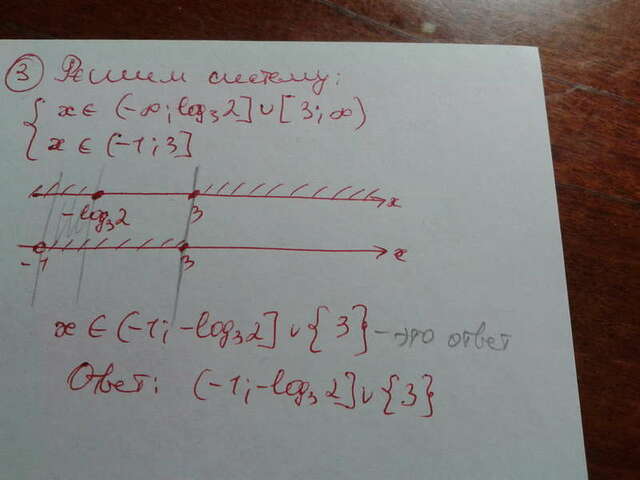 ③ Решим систему:
{ x ∈ (-∞; log₃2] ∪ [3; ∞)
x ∈ (-1; 3]
-log₃2 3 x
-1 3 x
x ∈ (-1; -log₃2] ∪ {3} - это ответ
Ответ: (-1; -log₃2] ∪ {3}